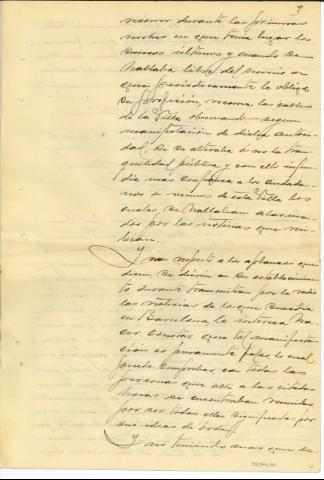 recorrer durante las primeras
noches en que tenia lugar los
sucesos últimos y cuando se
hallaba libre del servicio en
que periodicamente le obliga
su profesión, recorria las calles
de la Villa observando segun
manifestación de dicha autori-
dad, si se alteraba ó no la tran-
quilidad pública, y con ello infun-
dia mas confianza a los ciudada-
nos o vecinos de esta Villa los
cuales, se hallaban alarma-
dos por las noticias que reci-
bian.
Y con respecto a los aplausos que
dicen, se dieron en su establecimien-
to, durante transmitian por la radio
las noticias de lo que sucedia
en Barcelona, le interesa ha-
cer constar que tal manifesta-
ción es puramente falsa, lo cual
puede comprobar, con todas las
personas que alli a las citadas
horas se encontraban reunidas
por ser todas ellas significadas por
sus ideas de orden.
Y no teniendo mas que de-